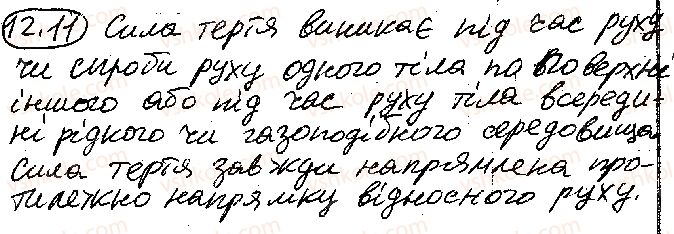 12.11 Сила тертя виникає під час руху
чи спроби руху одного тіла по поверхні
іншого або під час руху тіла всереди-
ні рідкого чи газоподібного середовища.
Сила тертя завжди напрямлена про-
тилежно напрямку відносного руху.